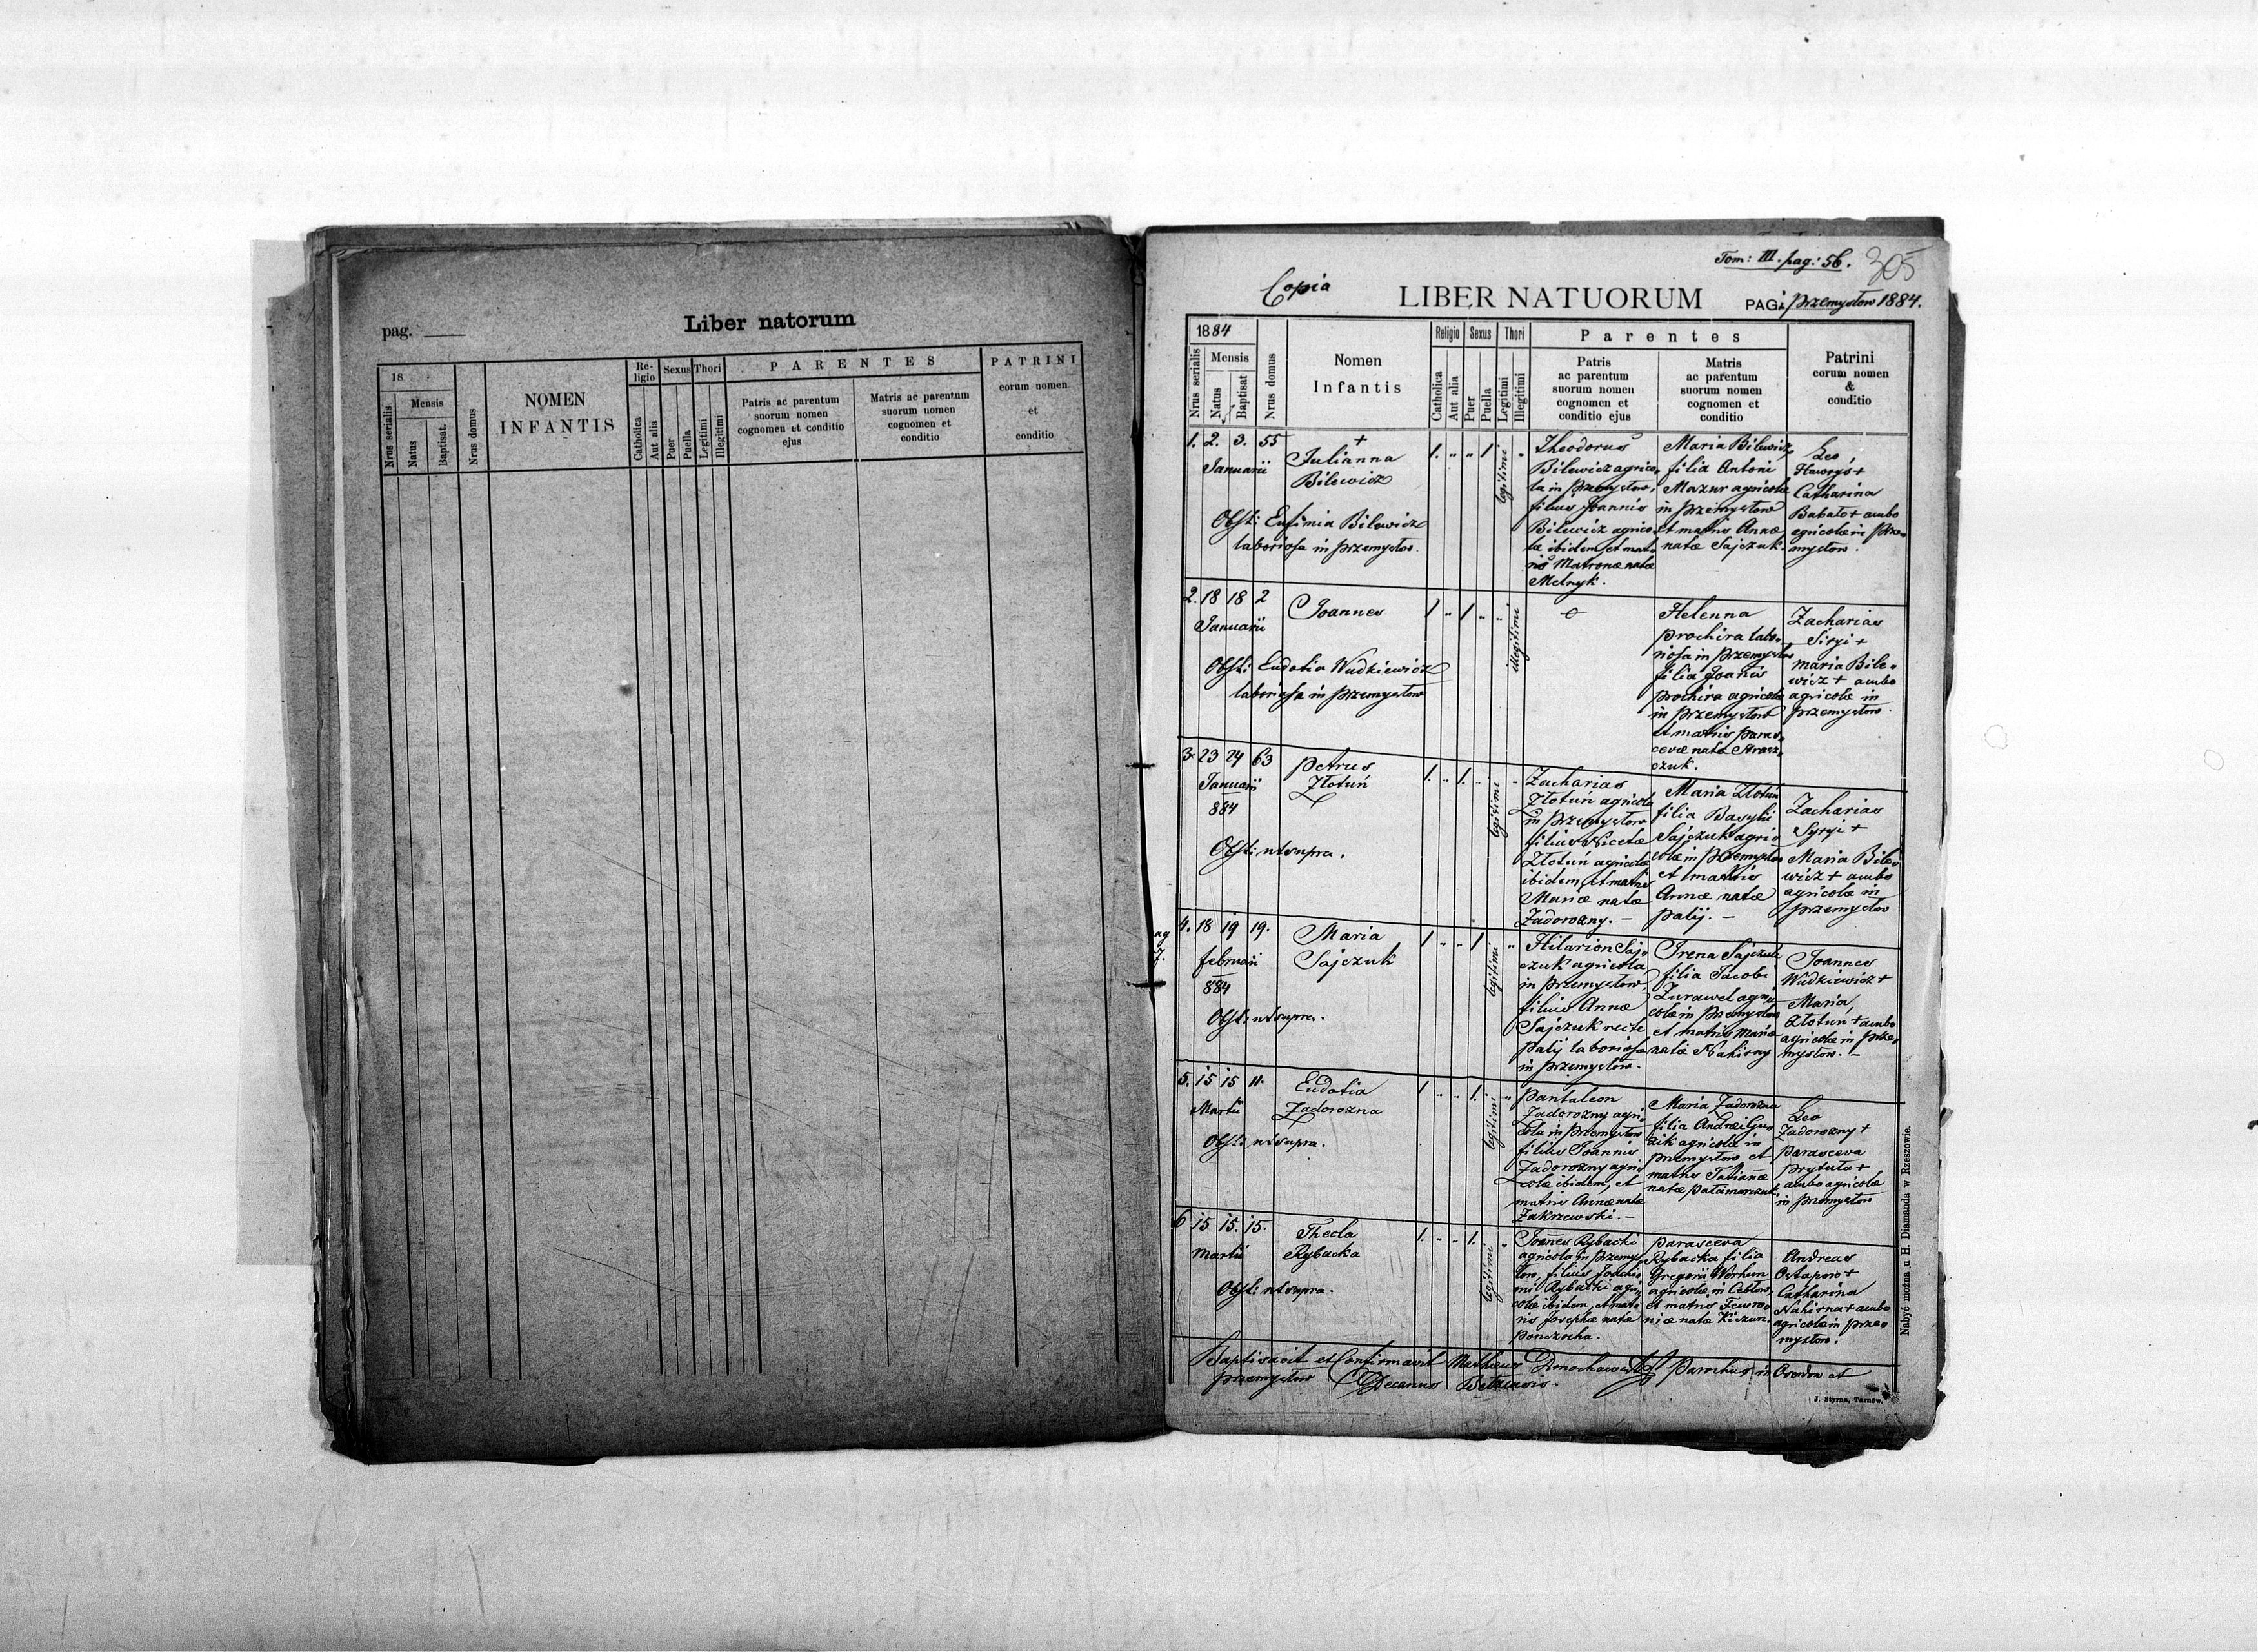 pag.
Liber natorum
18
Nrus serialis
Mensis
Natus
Baptisat.
Nrus domus
NOMEN
INFANTIS
Re-
ligio
Catholica
Aut alis
Sexus
Puer
Puella
Thori
Legitimi
Illegitimi
PARENTES
Patris ac parentum
suorum nomen
cognomen et conditio
ejus
Matris ac parentum
suorum nomen
cognomen et
conditio
PATRINI
eorum nomen
et
conditio
Tom: III. pag: 56.
305
Copia
LIBER NATUORUM
PAGI Przemysłow 1884.
1884
Nrus serialis
Mensis
Natus
Baptisat
Nrus domus
Nomen
Infantis
Religio
Catholica
Aut alia
Sexus
Puer
Puella
Thori
Legitimi
Illegitimi
Parentes
Patris
ac parentum
suorum nomen
cognomen et
conditio ejus
Matris
ac parentum
suorum nomen
cognomen et
conditio
Patrini
eorum nomen
&
conditio
1. 2. 3. 55
Januarii
+
Julianna
Bilewicz
Obst: Eufimia Bilewicz
laboriosa in Przemysłow.
1. " " 1
legitimi
"
Theodorus
Bilewicz agrico-
la in Przemysłow,
filius Joannis
Bilewicz agrico-
lae ibidem et mat-
ris Matronae natae
Melnyk.
Maria Bilewicz,
filia Antoni
Mazur agricolae
in Przemysłow
et matris Annae
natae Sajczuk.
Leo
Hawryś +
Catharina
Babato + ambo
agricolae in Prze-
mysłow.
2. 18 18 2
Januarii
Joannes
Obst: Eudotia Wudkiewicz
laboriosa in Przemysłow
1 " 1 " "
illegitimi
Helenna
Prochira labo-
riosa in Przemysłow
filia Joanis
Prochira agricolae
in Przemysłow
et matris Paras-
cevae natae Strasz-
czuk.
Zacharias
Siryi +
Maria Bile-
wicz + ambo
agricolae in
Przemysłow.
3. 23 24 63
Januarii
884
Petrus
Złotuń
Obst: ut supra.
1. " 1. "
legitimi
"
Zacharias
Złotuń agricola
in Przemysłow
filius Nicetae
Złotuń agricolae
ibidem, et matris
Mariae natae
Zadorozny. –
Maria Złotuń
filia Basylii
Sajczuk agri-
colae in Przemysłow
et matris
Annae natae
Palij. –
Zacharias
Syryi +
Maria Bile-
wicz + ambo
agricolae in
Przemysłow
4. 18 19 19.
februarii
884
Maria
Sajczuk
Obst: ut supra.
1 " " 1
legitimi
"
Hilarion Saj-
czuk agricola
in Przemysłow,
filius Annae
Sajczuk recte
Palij laboriosae
in Przemysłow.
Irena Sajczuk
filia Jacobi
Zurawel agri-
colae in Przemysłow
et matris Mariae
natae Nahirny
Joannes
Wudkiewicz +
Maria
Złotuń + ambo
agricolae in Prze-
mysłow. –
5. 15 15 11.
Martii
Eudotia
Zadorozna
Obst: ut supra.
1 " " 1.
legitimi
"
Pantaleon
Zadorozny agri-
cola in Przemysłow
filius Joannis
Zadorozny agri-
colae ibidem, et
matris Annae natae
Zakrzewski. –
Maria Zadorozna
filia Andrei
agricolae in
Przemysłow et
matris Tatianae
natae Patamarczuk
Leo
Zadorozny +
Parasceva
Prytuła +
ambo agricolae
in Przemysłow
6 15 15. 15.
Martii
Thecla
Rybacka
Obst: ut supra.
1. " " 1.
legitimi
"
Joannes Rybacki
agricola in Przemys-
łow, filius Joachi-
mi Rybacki agri-
colae ibidem, et mat-
ris Josephae natae
Ponczocha.
Parasceva
Rybacka filia
Gregorii Worhun
agricolae in Cebłow,
et matris Fewro-
niae natae Kiczun.
Andreas
Ostapow +
Catharina
Nahirna + ambo
agricolae in Prze-
mysłow.
Baptisavit et Confirmavit Matheus Dmochowski Parochus in Oserdow et
Przemysłow Decanus Bełzensis.
Nabyć można u H. Diamanda w Rzeszowie.
J. Styrna, Tarnów.